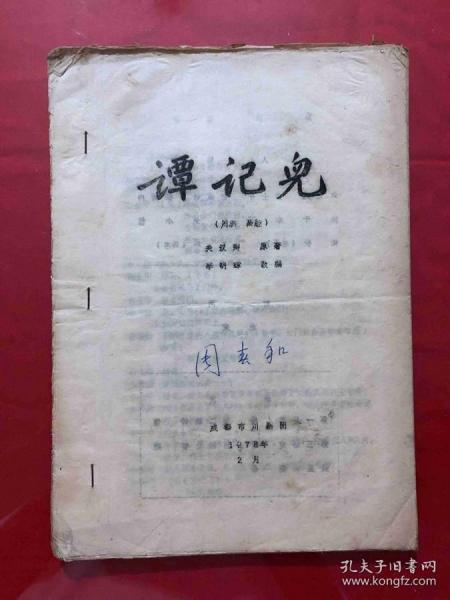 谭记儿
(川剧 高腔)
关汉卿 原著
改编
周春和
成都市川剧团
1978年
2月
孔夫子旧书网
www.kongfz.com